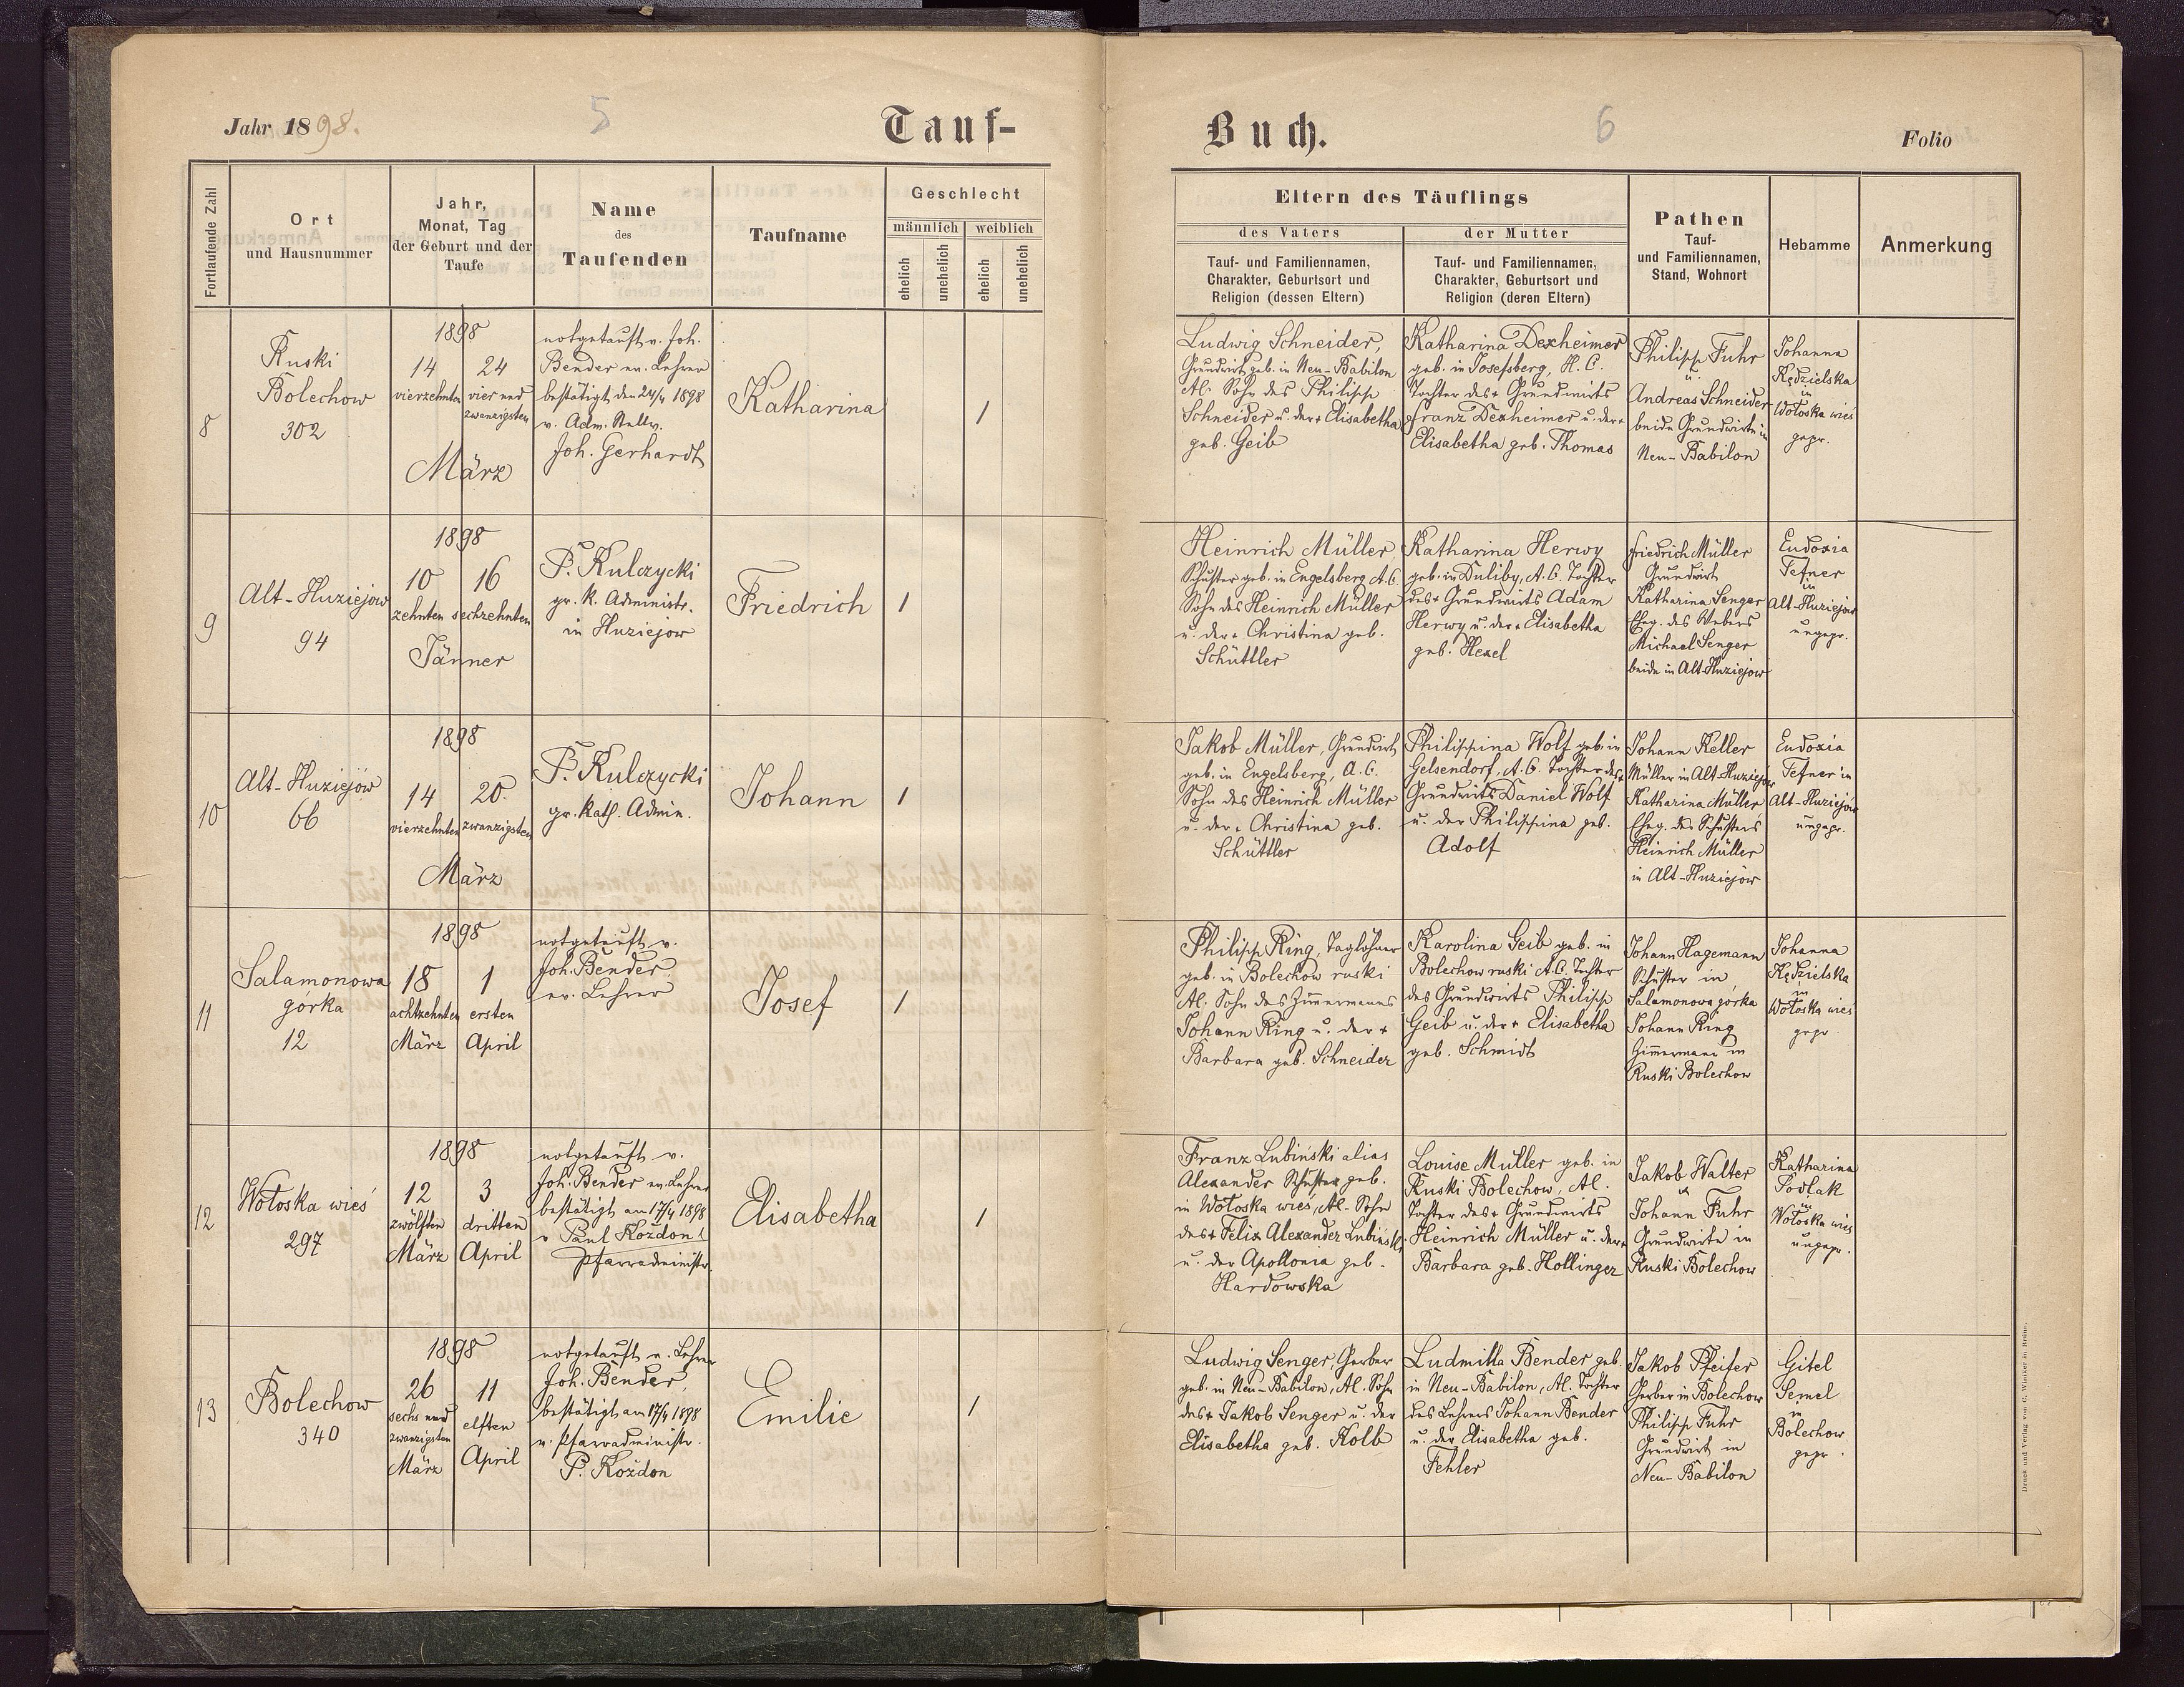 Jahr 1898.
5
Tauf-
Buch.
6
Folio
Fortlaufende Zahl
Ort
und Hausnummer
Jahr,
Monat, Tag
der Geburt und der
Taufe
Name
des
Taufenden
Taufname
Geschlecht
männlich
weiblich
ehelich
unehelich
ehelich
unehelich
Eltern des Täuflings
des Vaters
der Mutter
Tauf- und Familiennamen,
Charakter, Geburtsort und
Religion (dessen Eltern)
Tauf- und Familiennamen,
Charakter, Geburtsort und
Religion (deren Eltern)
Pathen
Tauf-
und Familiennamen,
Stand, Wohnort
Hebamme
Anmerkung
8
Ruski
Bolechow
302
1898
14 24
vierzehnten vier und
zwanzigsten
März
notgetauft v. Joh.
Bender ev. Lehrer
bestätigt den 24/4 1898
v. Adm. Stellv.
Joh. Gerhardt
Katharina
/
Ludwig Schneider,
Grundwirt geb. in Neu-Babilon
Al. Sohn des Philipp
Schneider u. der + Elisabetha
geb. Geib
Katharina Dexheimer
geb. in Josefsberg, H. C.
Tochter des + Grundwirts
Franz Dexheimer u. der +
Elisabetha geb. Thomas
Philipp Fuhr
u.
Andreas Schneider
beide Grundwirte in
Neu-Babilon
Johanna
Kędzielska
in
Wołoska wieś
gepr.
9
Alt-Huziejow
94
1898
10 16
zehnten sechzehnten
Jänner
P. Kulczycki
gr. K. Administr.
in Huziejow
Friedrich
/
Heinrich Müller
Schuster geb. in Engelsberg A.C.
Sohn des Heinrich Müller
u. der + Christina geb.
Schüttler
Katharina Herwy
geb. in Duliby, A. C. Tochter
des + Grundwirts Adam
Herwy u. der + Elisabetha
geb. Hexel
Friedrich Müller
Grundwirt
Katharina Senger
Eheg. des Webers
Michael Senger
beide in Alt-Huziejow
Eudoxia
Tefner
in
Alt-Huziejow
ungepr.
10
Alt-Huziejów
66
1898
14 20.
vierzehnten zwanzigsten
März
P. Kulczycki
gr. kath. Admin.
Johann
/
Jakob Müller, Grundwirt
geb. in Engelsberg, A. C.
Sohn des Heinrich Müller
u. der + Christina geb.
Schüttler
Philippina Wolf geb. in
Gelsendorf, A. C. Tochter des +
Grundwirts Daniel Wolf
u. der Philippina geb.
Adolf
Johann Keller
Müller in Alt-Huziejów
Katharina Müller
Eheg. des Schusters
Heinrich Müller
in Alt-Huziejów
Eudoxia
Tefner in
Alt-Huziejów
ungepr.
11
Salamonowa
górka
12
1898
18 1
achtzehnten ersten
März April
notgetauft v.
Joh. Bender
ev. Lehrer
Josef
/
Philipp Ring, Taglöhner
geb. in Bolechów ruski
Al. Sohn des Zimermanns
Johann Ring u. der +
Barbara geb. Schneider
Karolina Geib geb. in
Bolechow ruski A. C. Tochter
des Grundwirts Philipp
Geib u. der + Elisabetha
geb. Schmidt
Johann Hagemann
Schuster in
Salamonowa górka
Johann Ring
Zimermann in
Ruski Bolechow
Johanna
Kędzielska
in
Wołoska wieś
gepr.
12
Wołoska wieś
297
1898
12 3
zwölften dritten
März April
notgetauft v.
Joh. Bender ev. Lehrer
bestätigt am 17/4 1898
v Paul Kożdon
Pfarradministr.
Elisabetha
/
Franz Lubiński alias
Alexander Schuster geb.
in Wołoska wieś, Al. Sohn
des + Felix Alexander Lubiński
u. der Apollonia geb.
Hardowska
Louise Müller geb. in
Ruski Bolechow, Al.
Tochter des + Grundwirts
Heinrich Müller u. der +
Barbara geb. Hollinger
Jakob Walter
u.
Johann Fuhr
Grundwirte in
Ruski Bolechow
Katharina
Podlak
in
Wołoska wieś
ungepr.
13
Bolechow
340
1898
26 11
sechs und
zwanzigsten elften
März April
notgetauft v. Lehrer
Joh. Bender,
bestätigt am 17/4 1898
v. Pfarradministr.
P. Kożdon
Emilie
/
Ludwig Senger, Gerber
geb. in Neu-Babilon, Al. Sohn
des + Jakob Senger u. der
Elisabetha geb. Kolb
Ludmilla Bender geb.
in Neu-Babilon, Al. Tochter
des Lehrers Johann Bender
u. der Elisabetha geb.
Fehler
Jakob Pfeifer
Gerber in Bolechow
Philipp Fuhr
Grundwirt in
Neu-Babilon
Gitel
Semel
in
Bolechow
gepr.
Druck und Verlag von C. Winiker in Brünn.